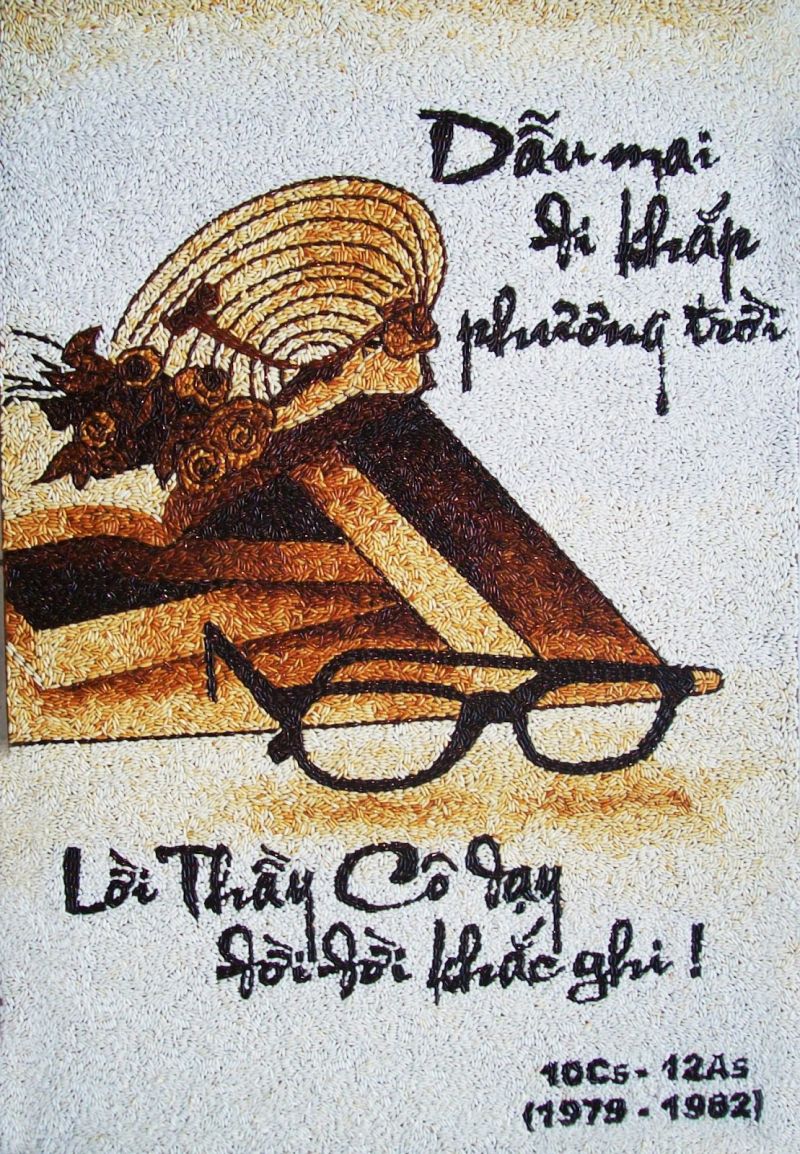 Dẫu mai
đi khắp
phương trời
Lời Thầy Cô dạy
đời đời khắc ghi !
10C5 - 12A5
(1979 - 1982)